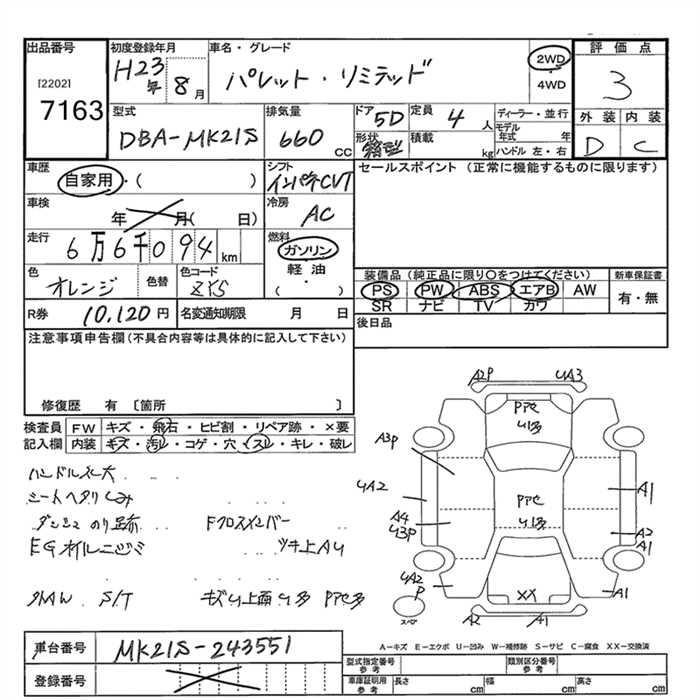 出品番号
[2202]
7163
初度登録年月
H23年 8月
車名・グレード
パレット・リミテッド
2WD
・
4WD
評価点
3
外装 内装
D C
型式
DBA-MK21S
排気量
660 CC
ドア 5D
形状 箱型
定員 4 人
積載 kg
ディーラー・並行
モデル年式 年
ハンドル 左・右
車歴
自家用・( )
シフト
インパネCVT
セールスポイント (正常に機能するものに限ります)
車検
年 月( 日)
冷房
AC
走行
6万6千094 km
燃料
ガソリン
軽油・
( )
色
オレンジ
色替
色コード
ZXS
装備品 (純正品に限り○をつけてください)
PS PW ABS エアB AW
SR ナビ TV カワ
新車保証書
有・無
R券 10,120円
名変通知期限 月 日
後日品
注意事項申告欄(不具合内容等は具体的に記入して下さい)
修復歴 有 [箇所 ]
検査員
記入欄
FW キズ・飛石・ヒビ割・リペア跡・×要
内装 キズ・汚レ・コゲ・穴・スレ・キレ・破レ
ハンドルスレ大
シートヘタリしみ
ダッシュ のり跡 Fクロスメンバー
EGオイルニジミ ツキ上AU
S/T キズU上面U多 PアセS多
A2P UA3
Pアセ
U13
A3P
UA2
A4
U3P
UA2
P
Pアセ
U多
A1
A2
A1
A1
XX
スペア
A2 A1
A-キズ E-エクボ U-凹み W-補修跡 S-サビ C-腐食 XX-交換済
車台番号 MK21S-243551
登録番号
型式指定番号
参考
類別区分番号
参考
車庫証明用
参考
長さ cm 幅 cm 高さ cm